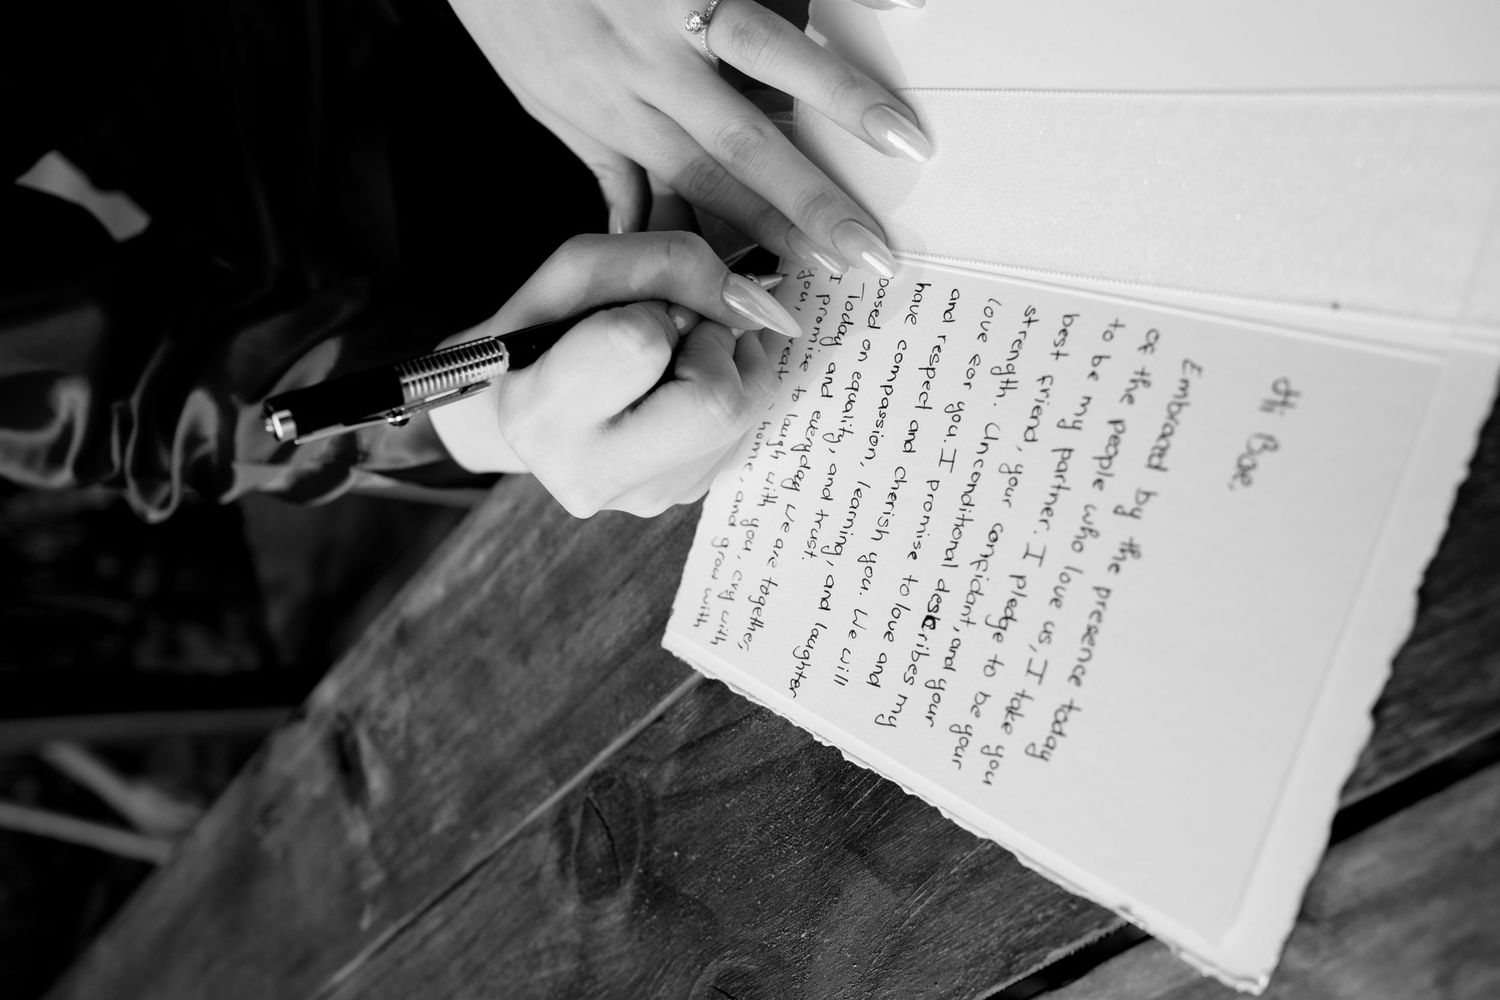 Hi Bae,
Embraced by the presence today
of the people who love us, I today
to be my partner. I take you
best friend, your pledge to be your
strength. confidant, and your
love for you. Unconditional describes my
and respect and promise to love and
have compassion, cherish you. We will
based on equality, learning, and laughter
Today and everyday and trust.
I promise to laugh with We are together,
you, you, cry with
home, and grow with